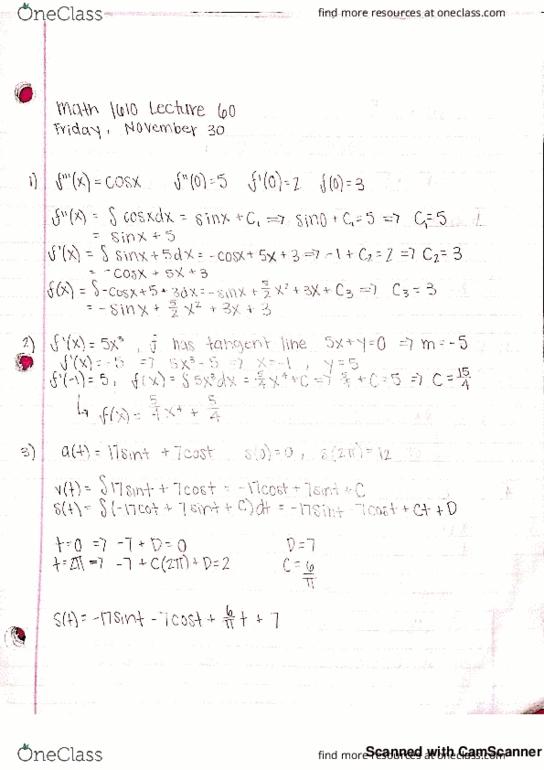 OneClass
find more resources at oneclass.com
Math 1610 Lecture 60
Friday, November 30
1) f'''(x) = cosx f''(0)=5 f'(0)=2 f(0)=3
f''(x) = ∫ cosxdx = sinx + C₁ => sin0 + C₁ = 5 => C₁=5
= sinx + 5
f'(x) = ∫ sinx+5dx = -cosx + 5x + 3 => -1 + C₂ = 2 => C₂ = 3
= -cosx + 5x + 3
f(x) = ∫-cosx+5+3dx = -sinx + 5/2 x² + 3x + C₃ => C₃ = 3
= -sinx + 5/2 x² + 3x + 3
2) f'(x) = 5x³, f has tangent line 5x+y=0 => m=-5
f'(x)=-5 => 5x³-5 => x=-1, y=5
f'(-1)=5, f(x) = ∫ 5x³dx = 5/4 x⁴ + C => 5/4 + C = 5 => C = 15/4
↳ f(x) = 5/4 x⁴ + 5/4
3) a(t) = 17sint + 7cost s(0)=0, s(2π)=12
v(t) = ∫17sint + 7cost = -17cost + 7sint + C
s(t) = ∫(-17cot + 7sint + C)dt = -17sint - 7cost + Ct + D
t=0 => -7 + D = 0 D=7
t=2π => -7 + C(2π) + D = 2 C = 6/π
s(t) = -17sint - 7cost + 6/π t + 7
OneClass
find more resources at oneclass.com
Scanned with CamScanner